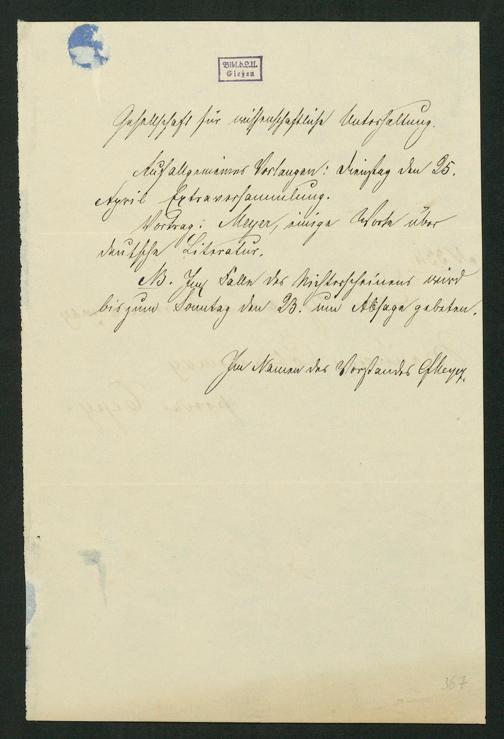 Bibl. d. L. U.
Gießen
Gesellschaft für wissenschaftliche Unterhaltung.
Auf allgemeines Verlangen: Dienstag den 25.
April Extraversammlung.
Vortrag: Meyer, einige Worte über
deutsche Literatur.
NB. Im Falle des Nichterscheinens wird
bis zum Sonntag den 23. um Absage gebeten.
Im Namen des Vorstandes Meyer.
367